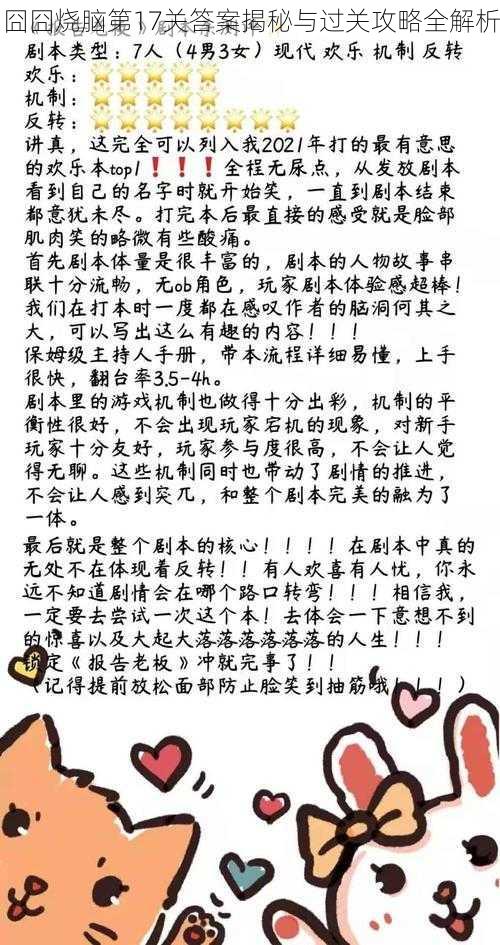 囧囧烧脑第17关答案揭秘与过关攻略全解析
《报告老板》剧本杀测评
剧本类型：7人（4男3女）现代 欢乐 机制 反转
欢乐：
机制：
反转：
讲真，这完全可以列入我2021年打的最有意思
的欢乐本top1❗❗❗全程无尿点，从发放剧本
看到自己的名字时就开始笑，一直到剧本结束
都意犹未尽。打完本后最直接的感受就是脸部
肌肉笑的略微有些酸痛。
首先剧本体量是很丰富的，剧本的人物故事串
联十分流畅，无ob角色，玩家剧本体验感超棒！
我们在打本时一度都在感叹作者的脑洞何其之
大，可以写出这么有趣的内容！！！
保姆级主持人手册，带本流程详细易懂，上手
很快，翻台率3.5-4h。
剧本里的游戏机制也做得十分出彩，机制的平
衡性很好，不会出现玩家宕机的现象，对新手
玩家十分友好，玩家参与度很高，不会让人觉
得无聊。这些机制同时也带动了剧情的推进，
不会让人感到突兀，和整个剧本完美的融为了
一体。
最后就是整个剧本的核心！！！！在剧本中真的
无处不在体现着反转！！有人欢喜有人忧，你永
远不知道剧情会在哪个路口转弯！！！相信我，
一定要去尝试一次这个本！去体会一下意想不到
的惊喜以及大起大落落落落落落的人生！！！
锁定《报告老板》冲就完事了！！
（记得提前放松面部防止脸笑到抽筋哦！！！）